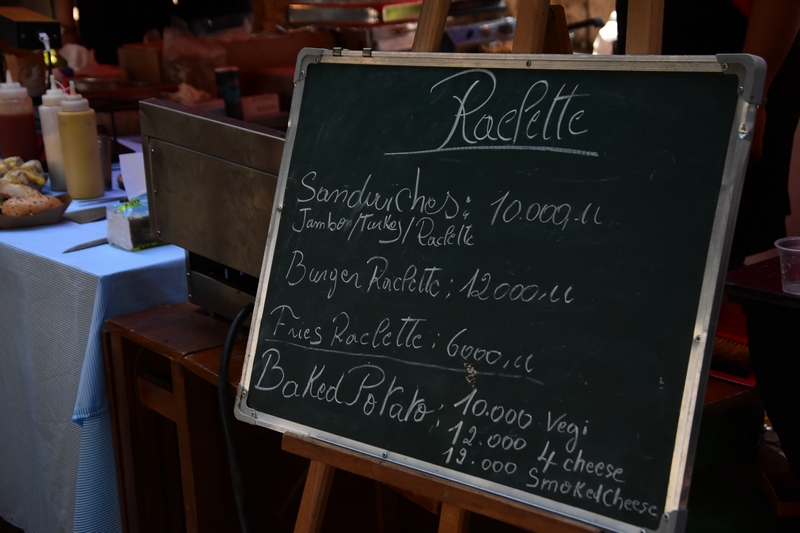 Raclette
Sandwiches: 10.000,LL
Jambo/Turkey/Raclette
Burger Raclette: 12000,LL
Fries Raclette: 6000,LL
Baked Potato: 10.000 Vegi
12.000 4 cheese
12.000 Smoked Cheese